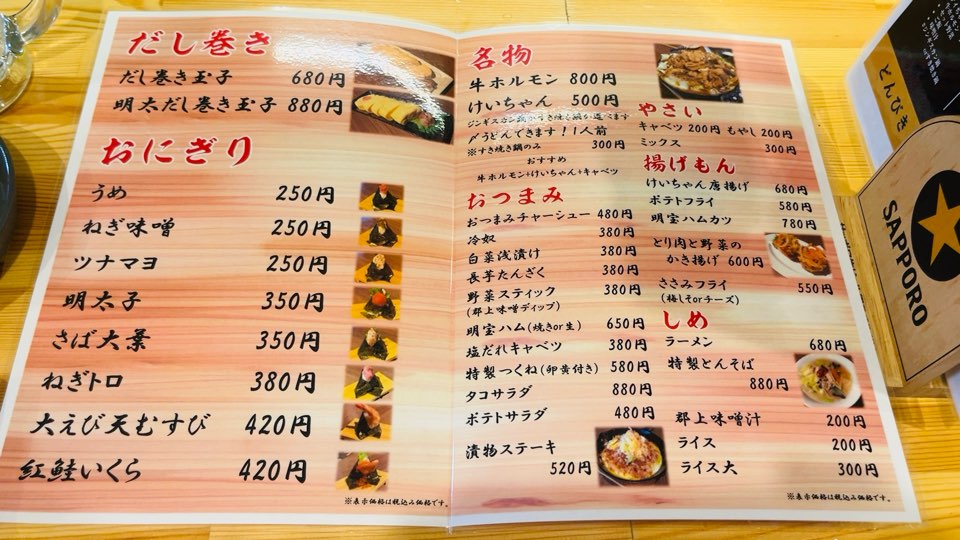 だし巻き
だし巻き玉子 680円
明太だし巻き玉子 880円
おにぎり
うめ 250円
ねぎ味噌 250円
ツナマヨ 250円
明太子 350円
さば大葉 350円
ねぎトロ 380円
大えび天むすび 420円
紅鮭いくら 420円
※表示価格は税込み価格です。
名物
牛ホルモン 800円
けいちゃん 500円
〆うどんできます！！1人前
※すき焼き鍋のみ 300円
おすすめ
牛ホルモン+けいちゃん+キャベツ
おつまみ
おつまみチャーシュー 480円
冷奴 380円
白菜浅漬け 380円
長芋たんざく 380円
野菜スティック 380円
(郡上味噌ディップ)
明宝ハム(焼きor生) 650円
塩だれキャベツ 380円
特製つくね(卵黄付き) 580円
タコサラダ 880円
ポテトサラダ 480円
漬物ステーキ
520円
やさい
キャベツ 200円 もやし 200円
ミックス 300円
揚げもん
けいちゃん唐揚げ 680円
ポテトフライ 580円
明宝ハムカツ 780円
とり肉と野菜の
かき揚げ 600円
ささみフライ 550円
(梅しそorチーズ)
しめ
ラーメン 680円
特製とんそば
880円
郡上味噌汁 200円
ライス 200円
ライス大 300円
※表示価格は税込み価格です。
とんびき
SAPPORO